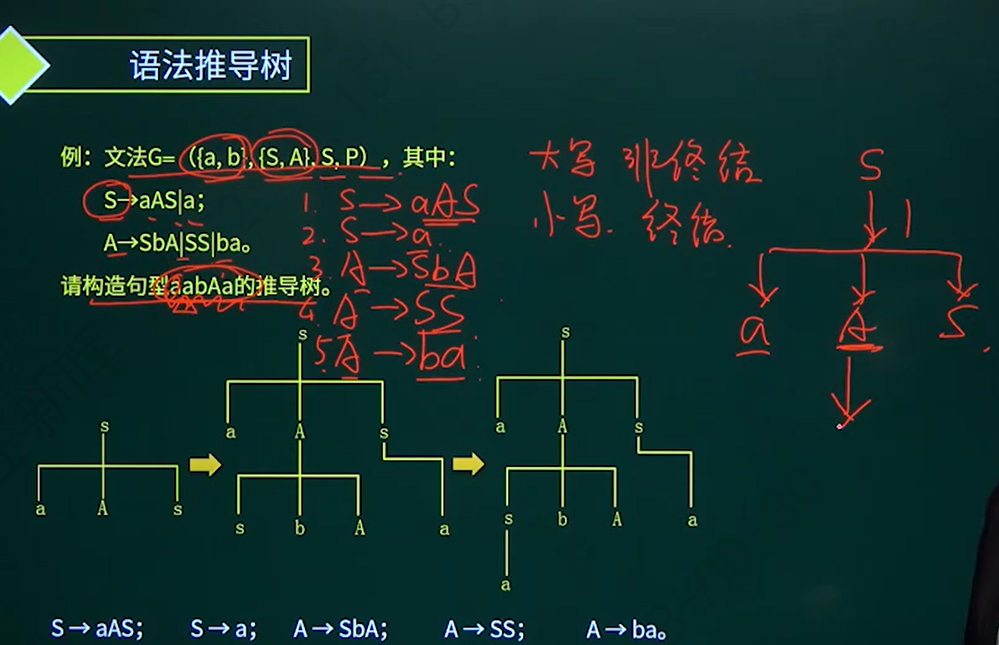 语法推导树
例：文法G=（{a, b}, {S, A}, S, P），其中：
S→aAS|a；
A→SbA|SS|ba。
请构造句型aabAa的推导树。
1. S→aAS
2. S→a
3. A→SbA
4. A→SS
5. A→ba
大写 非终结
小写. 终结.
S
1
a A S
s
a A s
s
a A s
s b A a
s
a A s
s b A a
a
S→aAS； S→a； A→SbA； A→SS； A→ba。